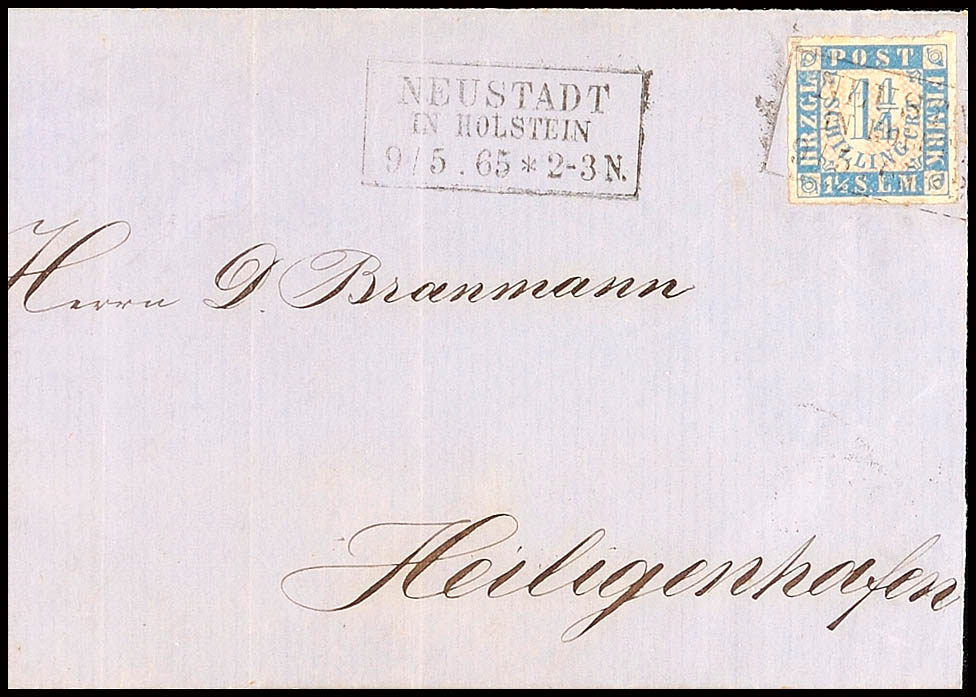 NEUSTADT
IN HOLSTEIN
9/5.65 * 2-3 N.
POST
HRZGL
1¼
SCHILLING CRT.
FRMRK
1⅓ S.L.M.
Herrn D. Branmann
Heiligenhafen